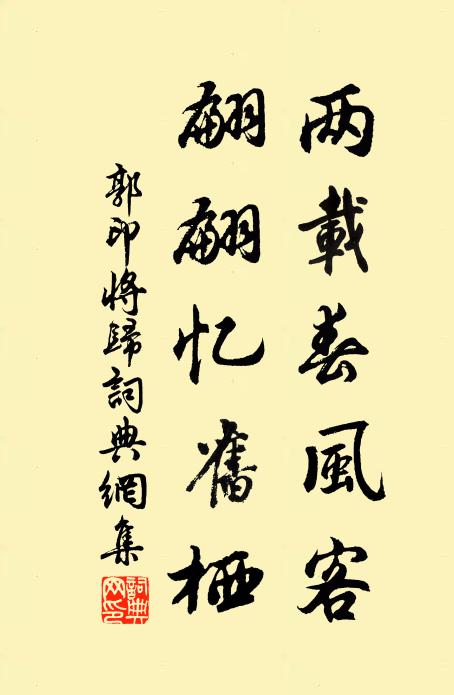 两載春風客
翩翩忆舊栖
郭印將歸詞典網集
詞典网印